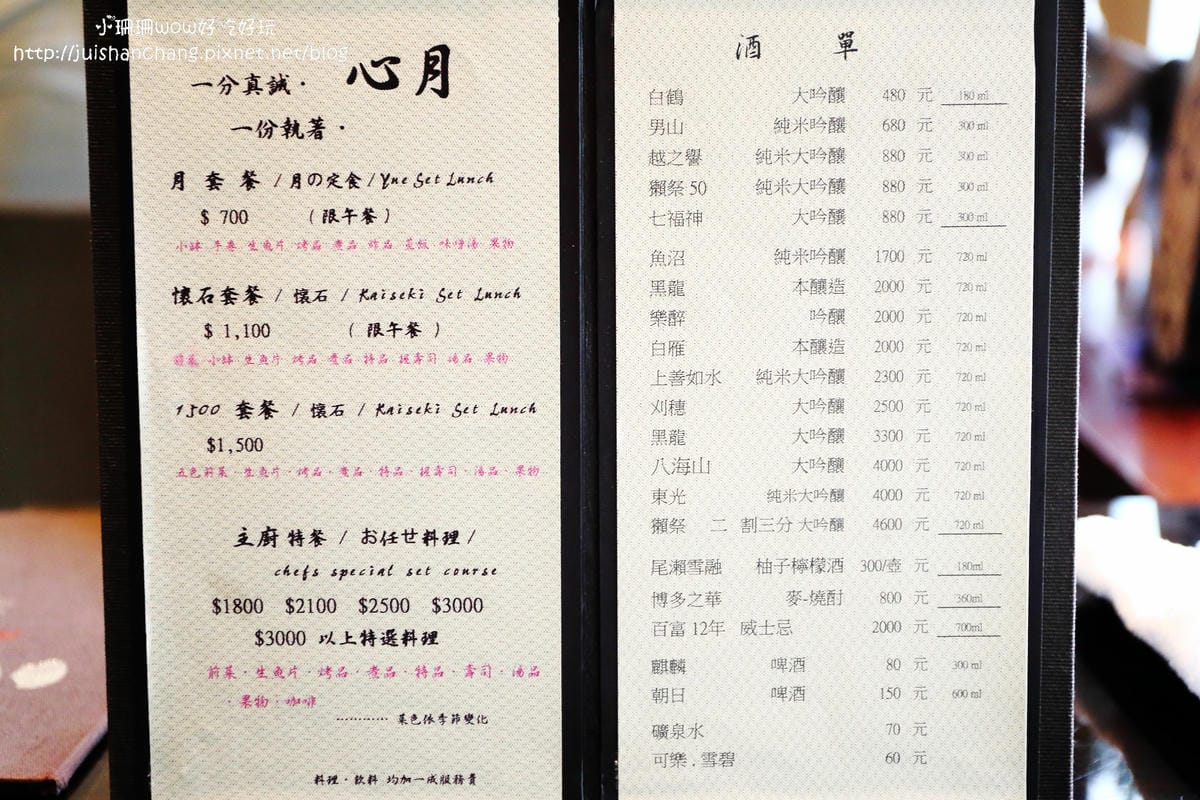 小珊珊wow好吃好玩
http://juishanchang.pixnet.net/blog
心月
一分真誠·
一份執著·
月 套 餐 / 月の定食 / Yue Set Lunch
$ 700 （ 限午餐 ）
小缽 手卷 生魚片 烤品 煮品 炸品 蒸飯 味噌湯 果物
懷石套餐 / 懷石 / Kaiseki Set Lunch
$ 1,100 （ 限午餐 ）
前菜 小缽 生魚片 烤品 煮品 特品 握壽司 湯品 果物
1500 套餐 / 懷石 / Kaiseki Set Lunch
$1,500
五色前菜·生魚片·烤品·煮品·特品·握壽司·湯品·果物
主廚特餐 / お任せ料理 /
chefs special set course
$1800 $2100 $2500 $3000
$3000 以上特選料理
前菜·生魚片·烤品·煮品·特品·壽司·湯品
·果物·咖啡
············ 菜色依季節變化
料理·飲料 均加一成服務費
酒 單
白鶴 大吟釀 480 元 180 ml
男山 純米吟釀 680 元 300 ml
越之譽 純米大吟釀 880 元 300 ml
獺祭 50 純米大吟釀 880 元 300 ml
七福神 大吟釀 880 元 300 ml
魚沼 純米吟釀 1700 元 720 ml
黑龍 本釀造 2000 元 720 ml
樂醉 吟釀 2000 元 720 ml
白雁 本釀造 2000 元 720 ml
上善如水 純米大吟釀 2300 元 720 ml
刈穗 大吟釀 2500 元 720 ml
黑龍 大吟釀 3300 元 720 ml
八海山 大吟釀 4000 元 720 ml
東光 純米大吟釀 4000 元 720 ml
獺祭 二 割三分 大吟釀 4600 元 720 ml
尾瀨雪融 柚子檸檬酒 300/壺 元 180ml
博多之華 麥-燒酎 800 元 360ml
百富 12年 威士忌 2000 元 700ml
麒麟 啤酒 80 元 300 ml
朝日 啤酒 150 元 600 ml
礦泉水 70 元
可樂 . 雪碧 60 元